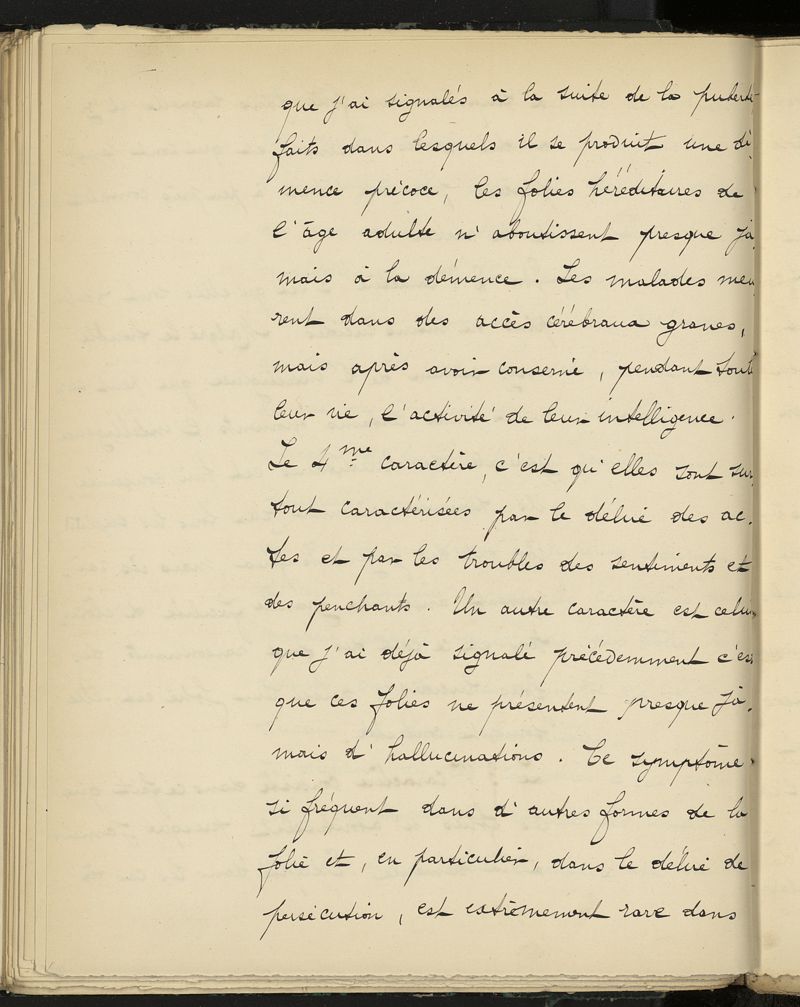 que j'ai signalés à la suite de la puberté
faits dans lesquels il se produit une dé-
mence précoce, les folies héréditaires de
l'âge adulte n'aboutissent presque ja-
mais à la démence. Les malades meu
rent dans des accès cérébraux graves,
mais après avoir conservé, pendant toute
leur vie, l'activité de leur intelligence.
Le 4me caractère, c'est qu'elles sont sur
tout caractérisées par le délire des ac-
tes et par les troubles des sentiments et
des penchants. Un autre caractère est celui
que j'ai déjà signalé précédemment c'est
que ces folies ne présentent presque ja-
mais d'hallucinations. Ce symptôme
si fréquent dans d'autres formes de la
folie et, en particulier, dans le délire de
persécution, est extrêmement rare dans